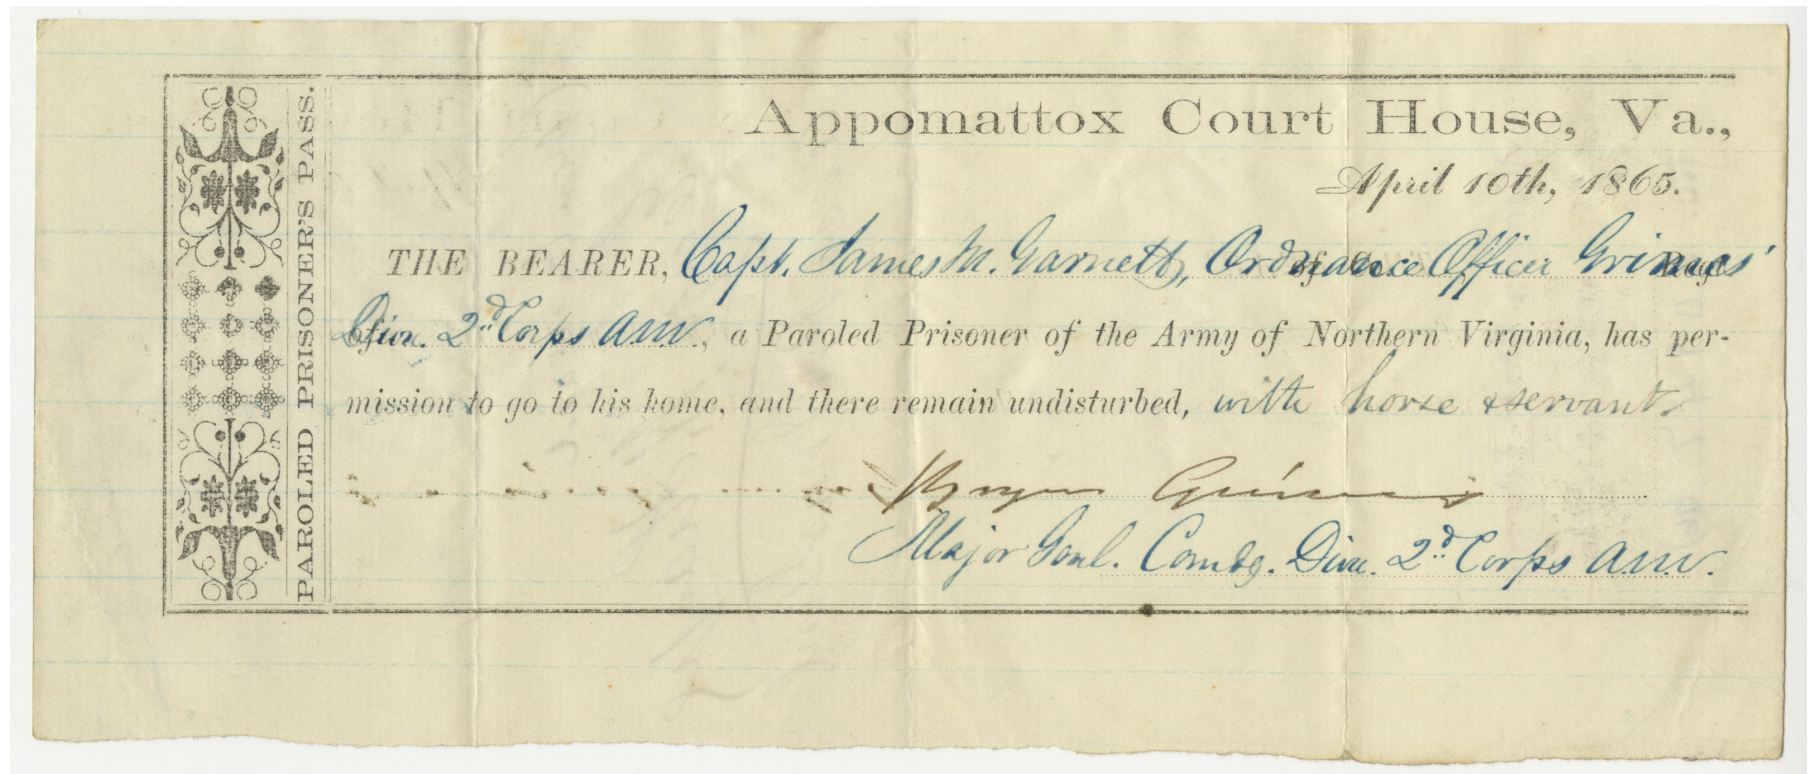 PAROLED PRISONER'S PASS.
Appomattox Court House, Va.,
April 10th, 1865.
THE BEARER, Capt. James M. Garnett, Ordnance Officer Grimes'
Divn. 2nd Corps ANV., a Paroled Prisoner of the Army of Northern Virginia, has per-
mission to go to his home, and there remain undisturbed, with horse & servant.
Bryan Grimes
Major Genl. Comdg. Divn. 2d Corps ANV.